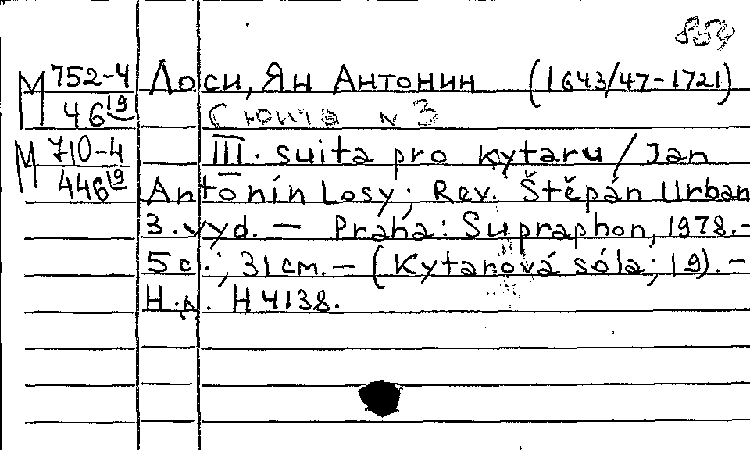 854
М 752-4 Лоси, Ян Антонин (1643/47-1721)
46 19 Сюита N 3
М 710-4 III. suita pro kytaru / Jan
446 19 Antonín Losy; Rev. Štěpán Urban
3. vyd. — Praha: Supraphon, 1978.-
5 с.; 31 cm. — (Kytarová sóla; 19). -
Н.д. H 4138.